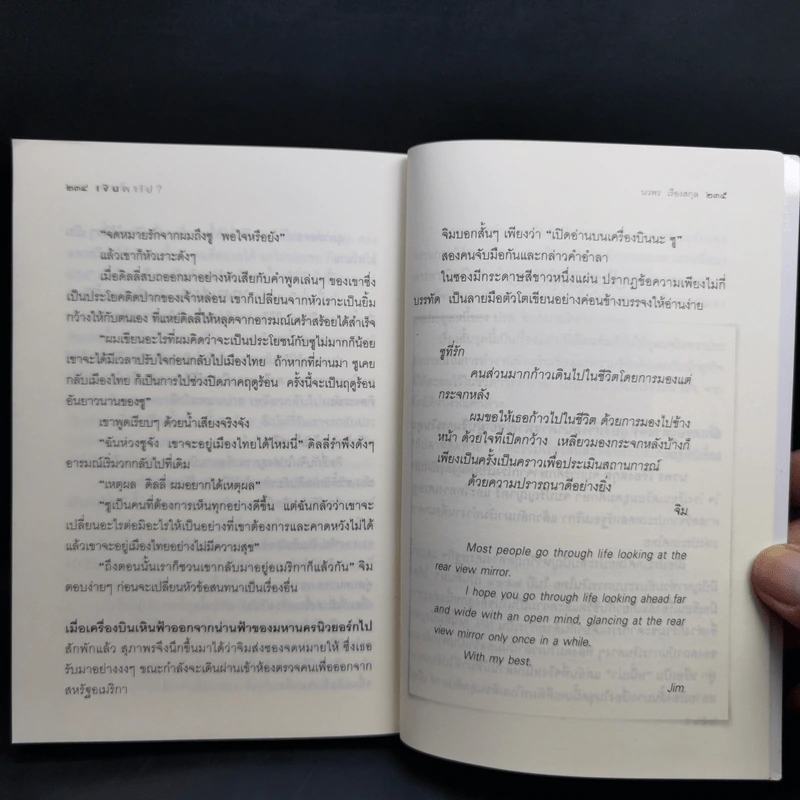 ๒๓๔
"จดหมายรักจากผมถึงซู พอใจหรือยัง"
แล้วเขาก็หัวเราะดังๆ
เมื่อดิลลี่สบถออกมาอย่างหัวเสียกับคำพูดเล่นๆ ของเขาซึ่ง
เป็นประโยคติดปากของเจ้าหล่อน เขาก็เปลี่ยนจากหัวเราะเป็นยิ้ม
กว้างให้กับตนเอง ที่แหย่ดิลลี่ให้หลุดจากอารมณ์เศร้าสร้อยได้สำเร็จ
"ผมเขียนอะไรที่ผมคิดว่าจะเป็นประโยชน์กับซูไม่มากก็น้อย
เขาจะได้มีเวลาปรับใจก่อนกลับไปเมืองไทย ถ้าหากที่ผ่านมา ซูเคย
กลับเมืองไทย ก็เป็นการไปช่วงปิดภาคฤดูร้อน ครั้งนี้จะเป็นฤดูร้อน
อันยาวนานของซู"
เขาพูดเรียบๆ ด้วยน้ำเสียงจริงจัง
"ฉันห่วงซูจัง เขาจะอยู่เมืองไทยได้ไหมนี่" ดิลลี่รำพึงดังๆ
อารมณ์เริ่มวกกลับไปที่เดิม
"เหตุผล ดิลลี่ ผมอยากได้เหตุผล"
"ซูเป็นคนที่ต้องการเห็นทุกอย่างดีขึ้น แต่ฉันกลัวว่าเขาจะ
เปลี่ยนอะไรต่อมิอะไรให้เป็นอย่างที่เขาต้องการและคาดหวังไม่ได้
แล้วเขาจะอยู่เมืองไทยอย่างไม่มีความสุข"
"ถึงตอนนั้นเราก็ชวนเขากลับมาอยู่อเมริกาก็แล้วกัน" จิม
ตอบง่ายๆ ก่อนจะเปลี่ยนหัวข้อสนทนาเป็นเรื่องอื่น
เมื่อเครื่องบินเหินฟ้าออกจากน่านฟ้าของมหานครนิวยอร์กไป
สักพักแล้ว สุภาพรจึงนึกขึ้นมาได้ว่าจิมส่งซองจดหมายให้ ซึ่งเธอ
รับมาอย่างงงๆ ขณะกำลังจะเดินผ่านเข้าห้องตรวจคนเพื่อออกจาก
สหรัฐอเมริกา
นวพร เรืองสกุล ๒๓๕
จิมบอกสั้นๆ เพียงว่า "เปิดอ่านบนเครื่องบินนะ ซู"
สองคนจับมือกันและกล่าวคำอำลา
ในซองมีกระดาษสีขาวหนึ่งแผ่น ปรากฏข้อความเพียงไม่กี่
บรรทัด เป็นลายมือตัวโตเขียนอย่างค่อนข้างบรรจงให้อ่านง่าย
ซูที่รัก
คนส่วนมากก้าวเดินไปในชีวิตโดยการมองแต่
กระจกหลัง
ผมขอให้เธอก้าวไปในชีวิต ด้วยการมองไปข้าง
หน้า ด้วยใจที่เปิดกว้าง เหลียวมองกระจกหลังบ้างก็
เพียงเป็นครั้งเป็นคราวเพื่อประเมินสถานการณ์
ด้วยความปรารถนาดีอย่างยิ่ง
จิม
Most people go through life looking at the
rear view mirror.
I hope you go through life looking ahead far
and wide with an open mind, glancing at the rear
view mirror only once in a while.
With my best.
Jim